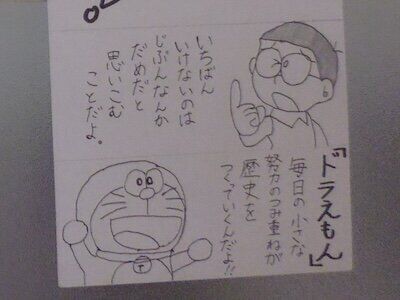 いちばん
いけないのは
じぶんなんか
だめだと
思いこむ
ことだよ。
『ドラえもん』
毎日の小さな
努力のつみ重ねが
歴史を
つくっていくんだよ!!